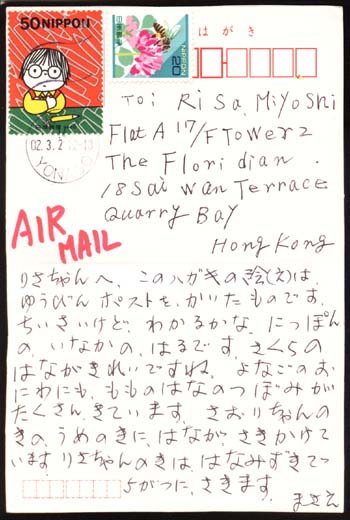 50 NIPPON
日本郵便
NIPPON
20
はがき
02.3.2
YONAGO
To: Risa Miyoshi
Flat A 17/F Tower 2
The Floridian.
18 Sai Wan Terrace
Quarry Bay
Hong Kong
AIR
MAIL
りさちゃんへ、このハガキの絵(え)は、
ゆうびんポストを、かいたものです。
ちいさいけど、わかるかな、にっぽん
の、いなかの、はるです。さくらの
はながきれいですね。よなごのお
にわにも、もものはなのつぼみが
たくさん、きています。さおりちゃんの
きの、うめのきに、はなが、さきかけて
います。りさちゃんのきは、はなみずきで
5がつに、さきます。
まさえ